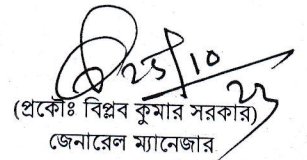 25/10/23
(প্রকৌঃ বিপ্লব কুমার সরকার)
জেনারেল ম্যানেজার